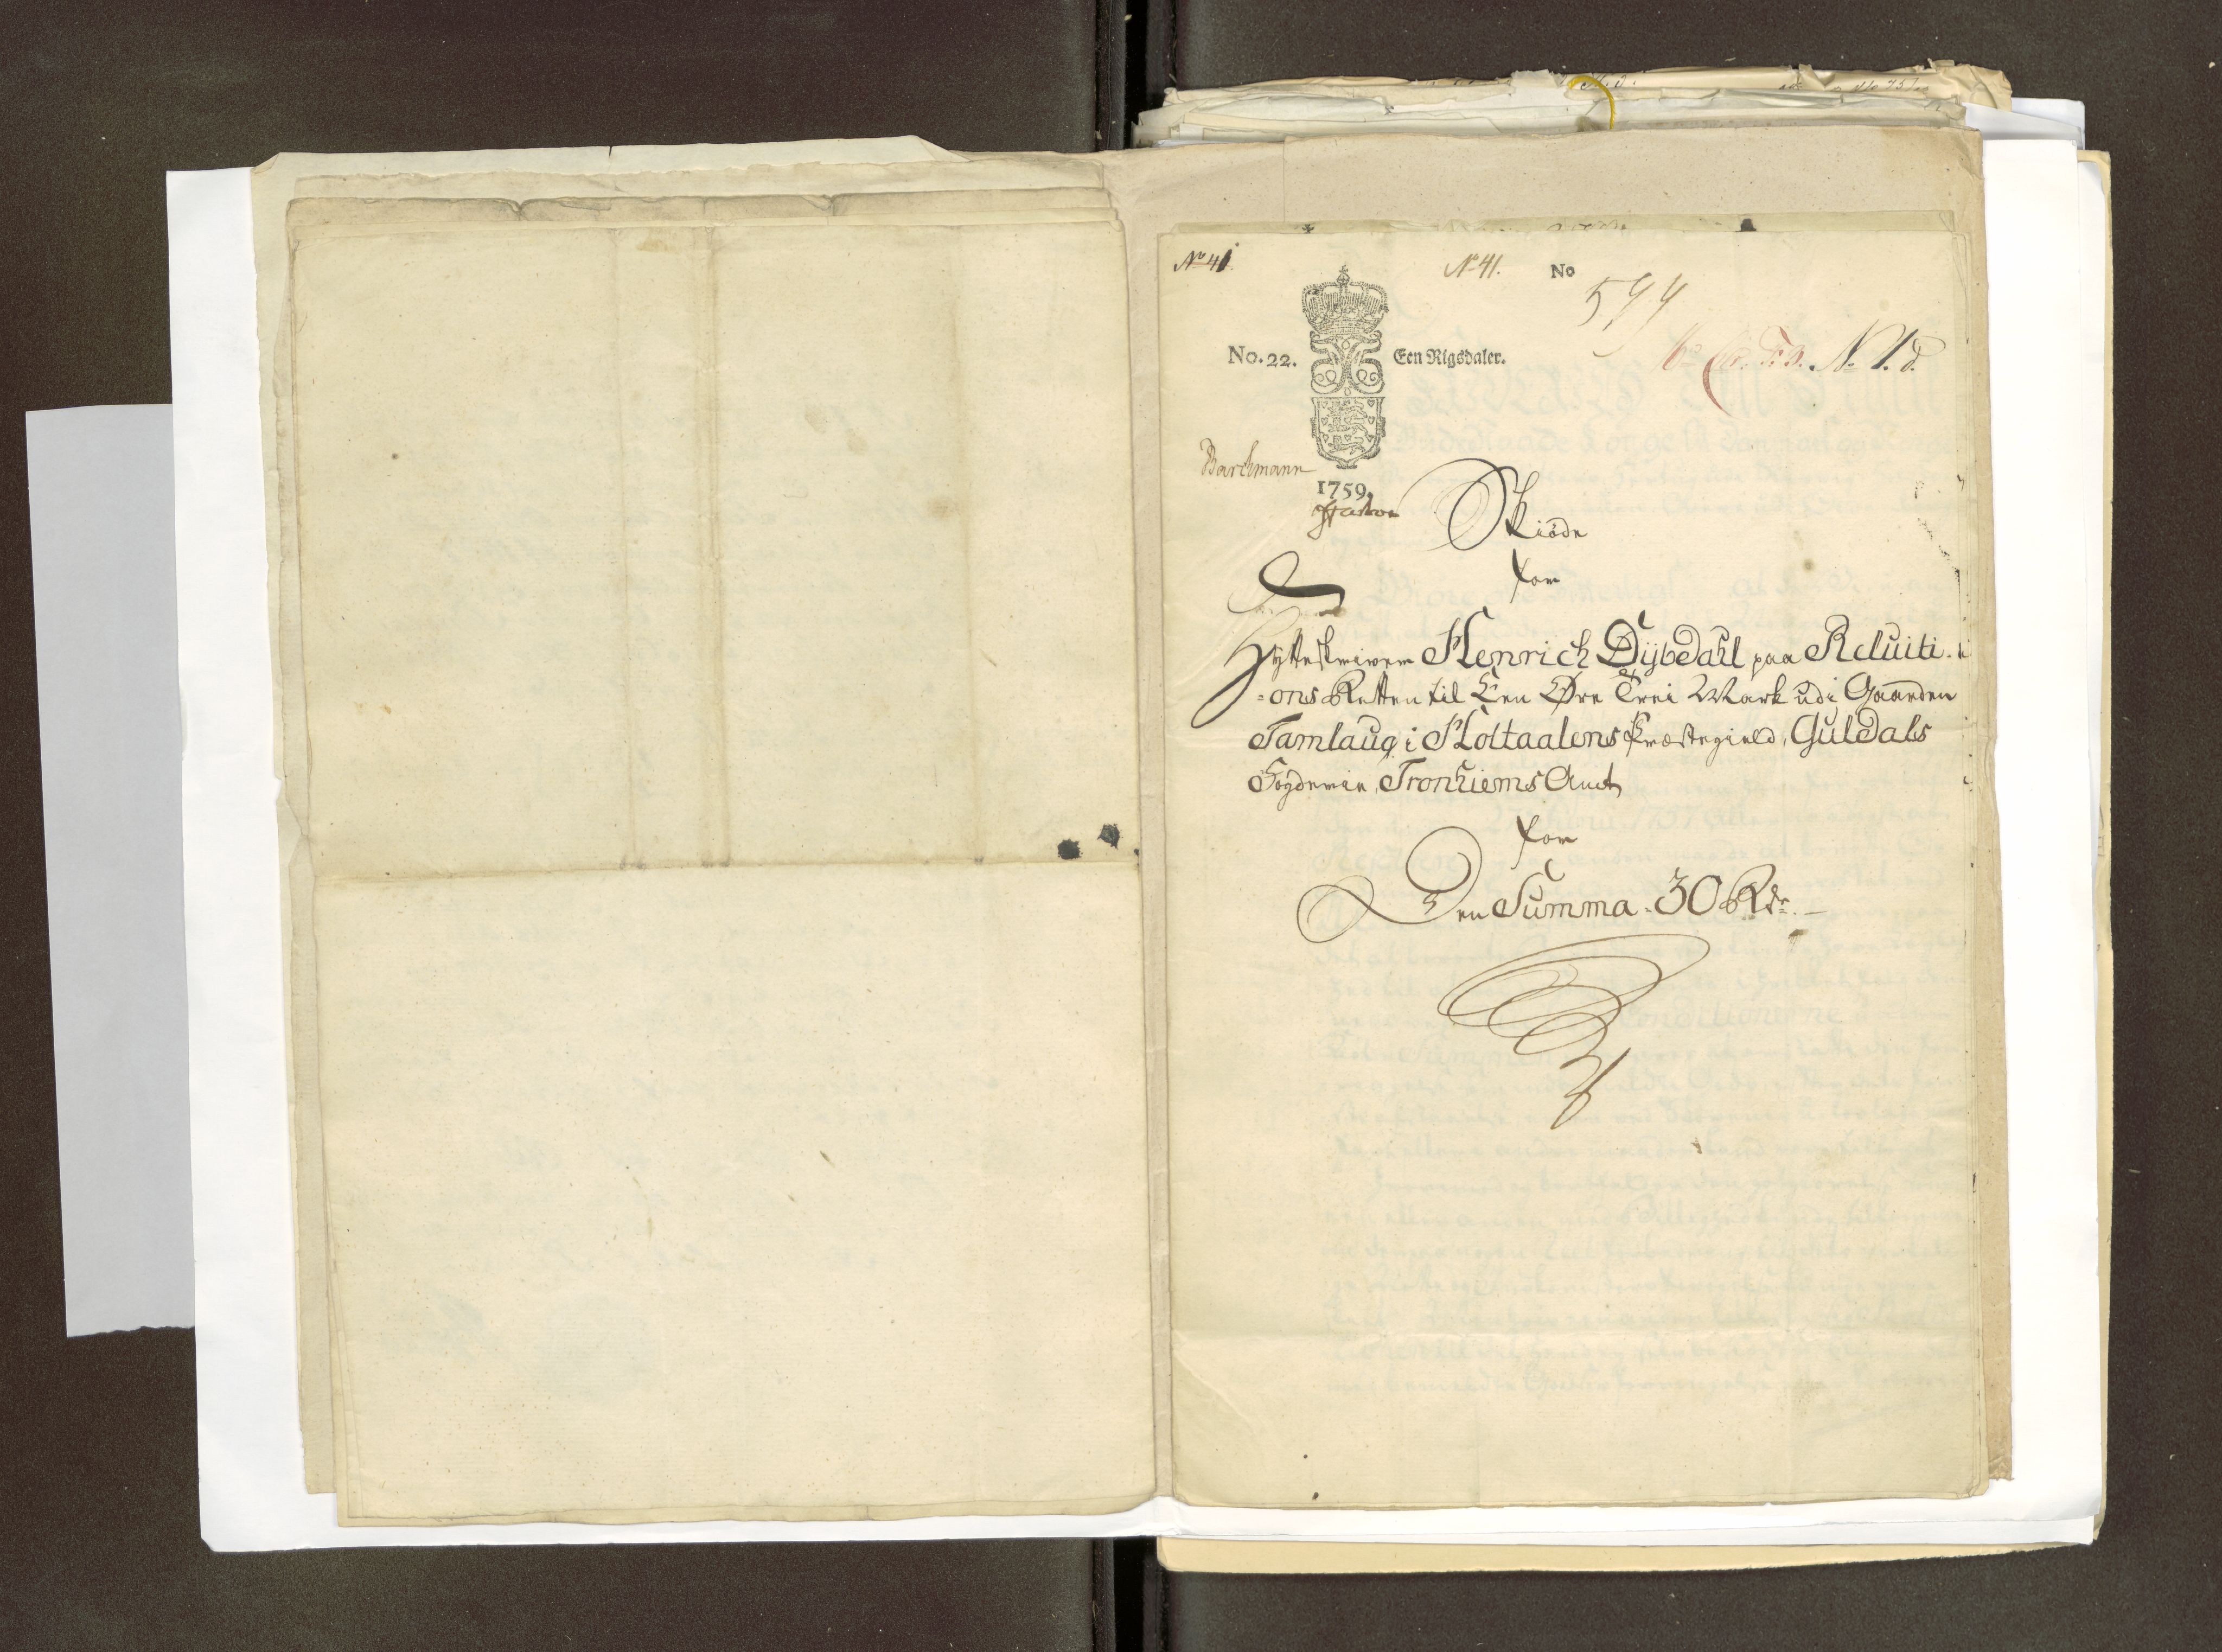 No 41.
No 41.
No
544
No. 22.
Een Rigsdaler.
No 1. d.
Barchmann
1759.
Skiöde
for
Hytteskriver Henrich Dijbdahl paa Reluiti-
=ons Retten til Een Øre Trei Mark udi Gaarden
Tamlaug i Holtaalens Præstegield, Guldals
Fogderie, Tronhiems Amt,
for
Den Summa. 30 Rdr.